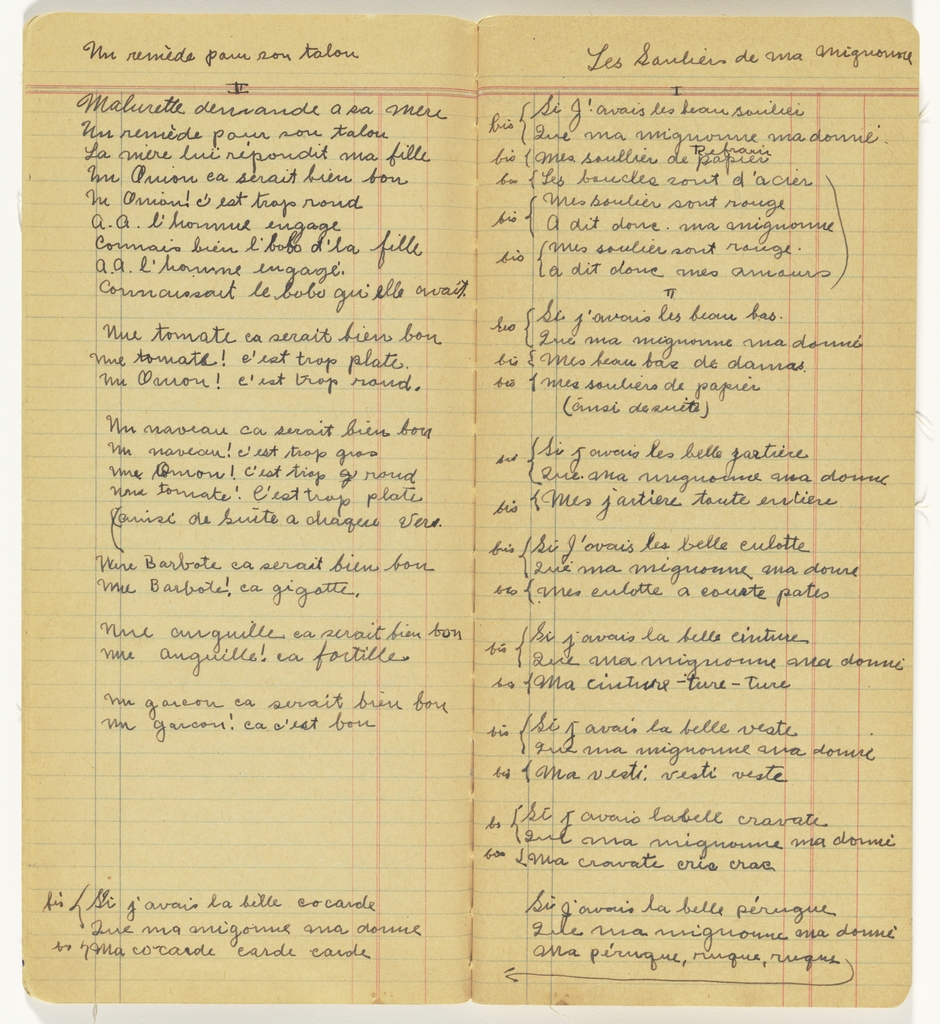 Un remède pour son talon
II
Malurette demande a sa mère
Un remède pour son talon
La mère lui répondit ma fille
Un Onion ca serait bien bon
Un Onion! c'est trop rond
A.A. l'homme engage
Connais bien l'bobo d'la fille
A.A. l'homme engagé.
Connaissait le bobo qu'elle avait.
Une tomate ca serait bien bon
une tomate! c'est trop plate.
Un Onion! c'est trop rond.
Un naveau ca serait bien bon
Un naveau! c'est trop gros
une Onion! c'est trop rond
une tomate! C'est trop plate
(ainsi de suite a chaque vers.
Une Barbote ca serait bien bon
une Barbote! ca gigotte.
Une anguille ca serait bien bon
une anguille! ca fortille
un garcon ca serait bien bon
un garcon! ca c'est bon
bis { Si j'avais la bèlle cocarde
Que ma migonne ma donne
bis { Ma cocarde carde carde
Les Souliers de ma mignonne
I
bis { Si J'avais les beau soulier
Que ma mignonne ma donné.
bis { Mes soullier de papier
Refrain
bis { Les boucles sont d'acier
bis { Mes soulier sont rouge
A dit donc. ma mignonne
bis { mes soulier sont rouge.
a dit donc mes amours
II
bis { Si j'avais les beau bas.
Que ma mignonne ma donné
bis { Mes beau bas de damas.
bis { mes souliers de papier
(ainsi de suite)
bis { Si j'avais les belle jartière
Que ma mignonne ma donne
bis { Mes jartière toute entière
bis { Si J'avais les belle culotte
Que ma mignonne ma donne
bis { mes culotte a courte pates
bis { Si j'avais la belle cinture
Que ma mignonne ma donné
bis { Ma cinture-ture-ture
bis { Si j'avais la belle veste
Que ma mignonne ma donné
bis { Ma vesti, vesti veste
bis { Si j'avais la bell cravate
Que ma mignonne ma donné
bis { Ma cravate cric crac
Si j'avais la belle péruque
Que ma mignonne ma donné
Ma péruque, ruque, ruque